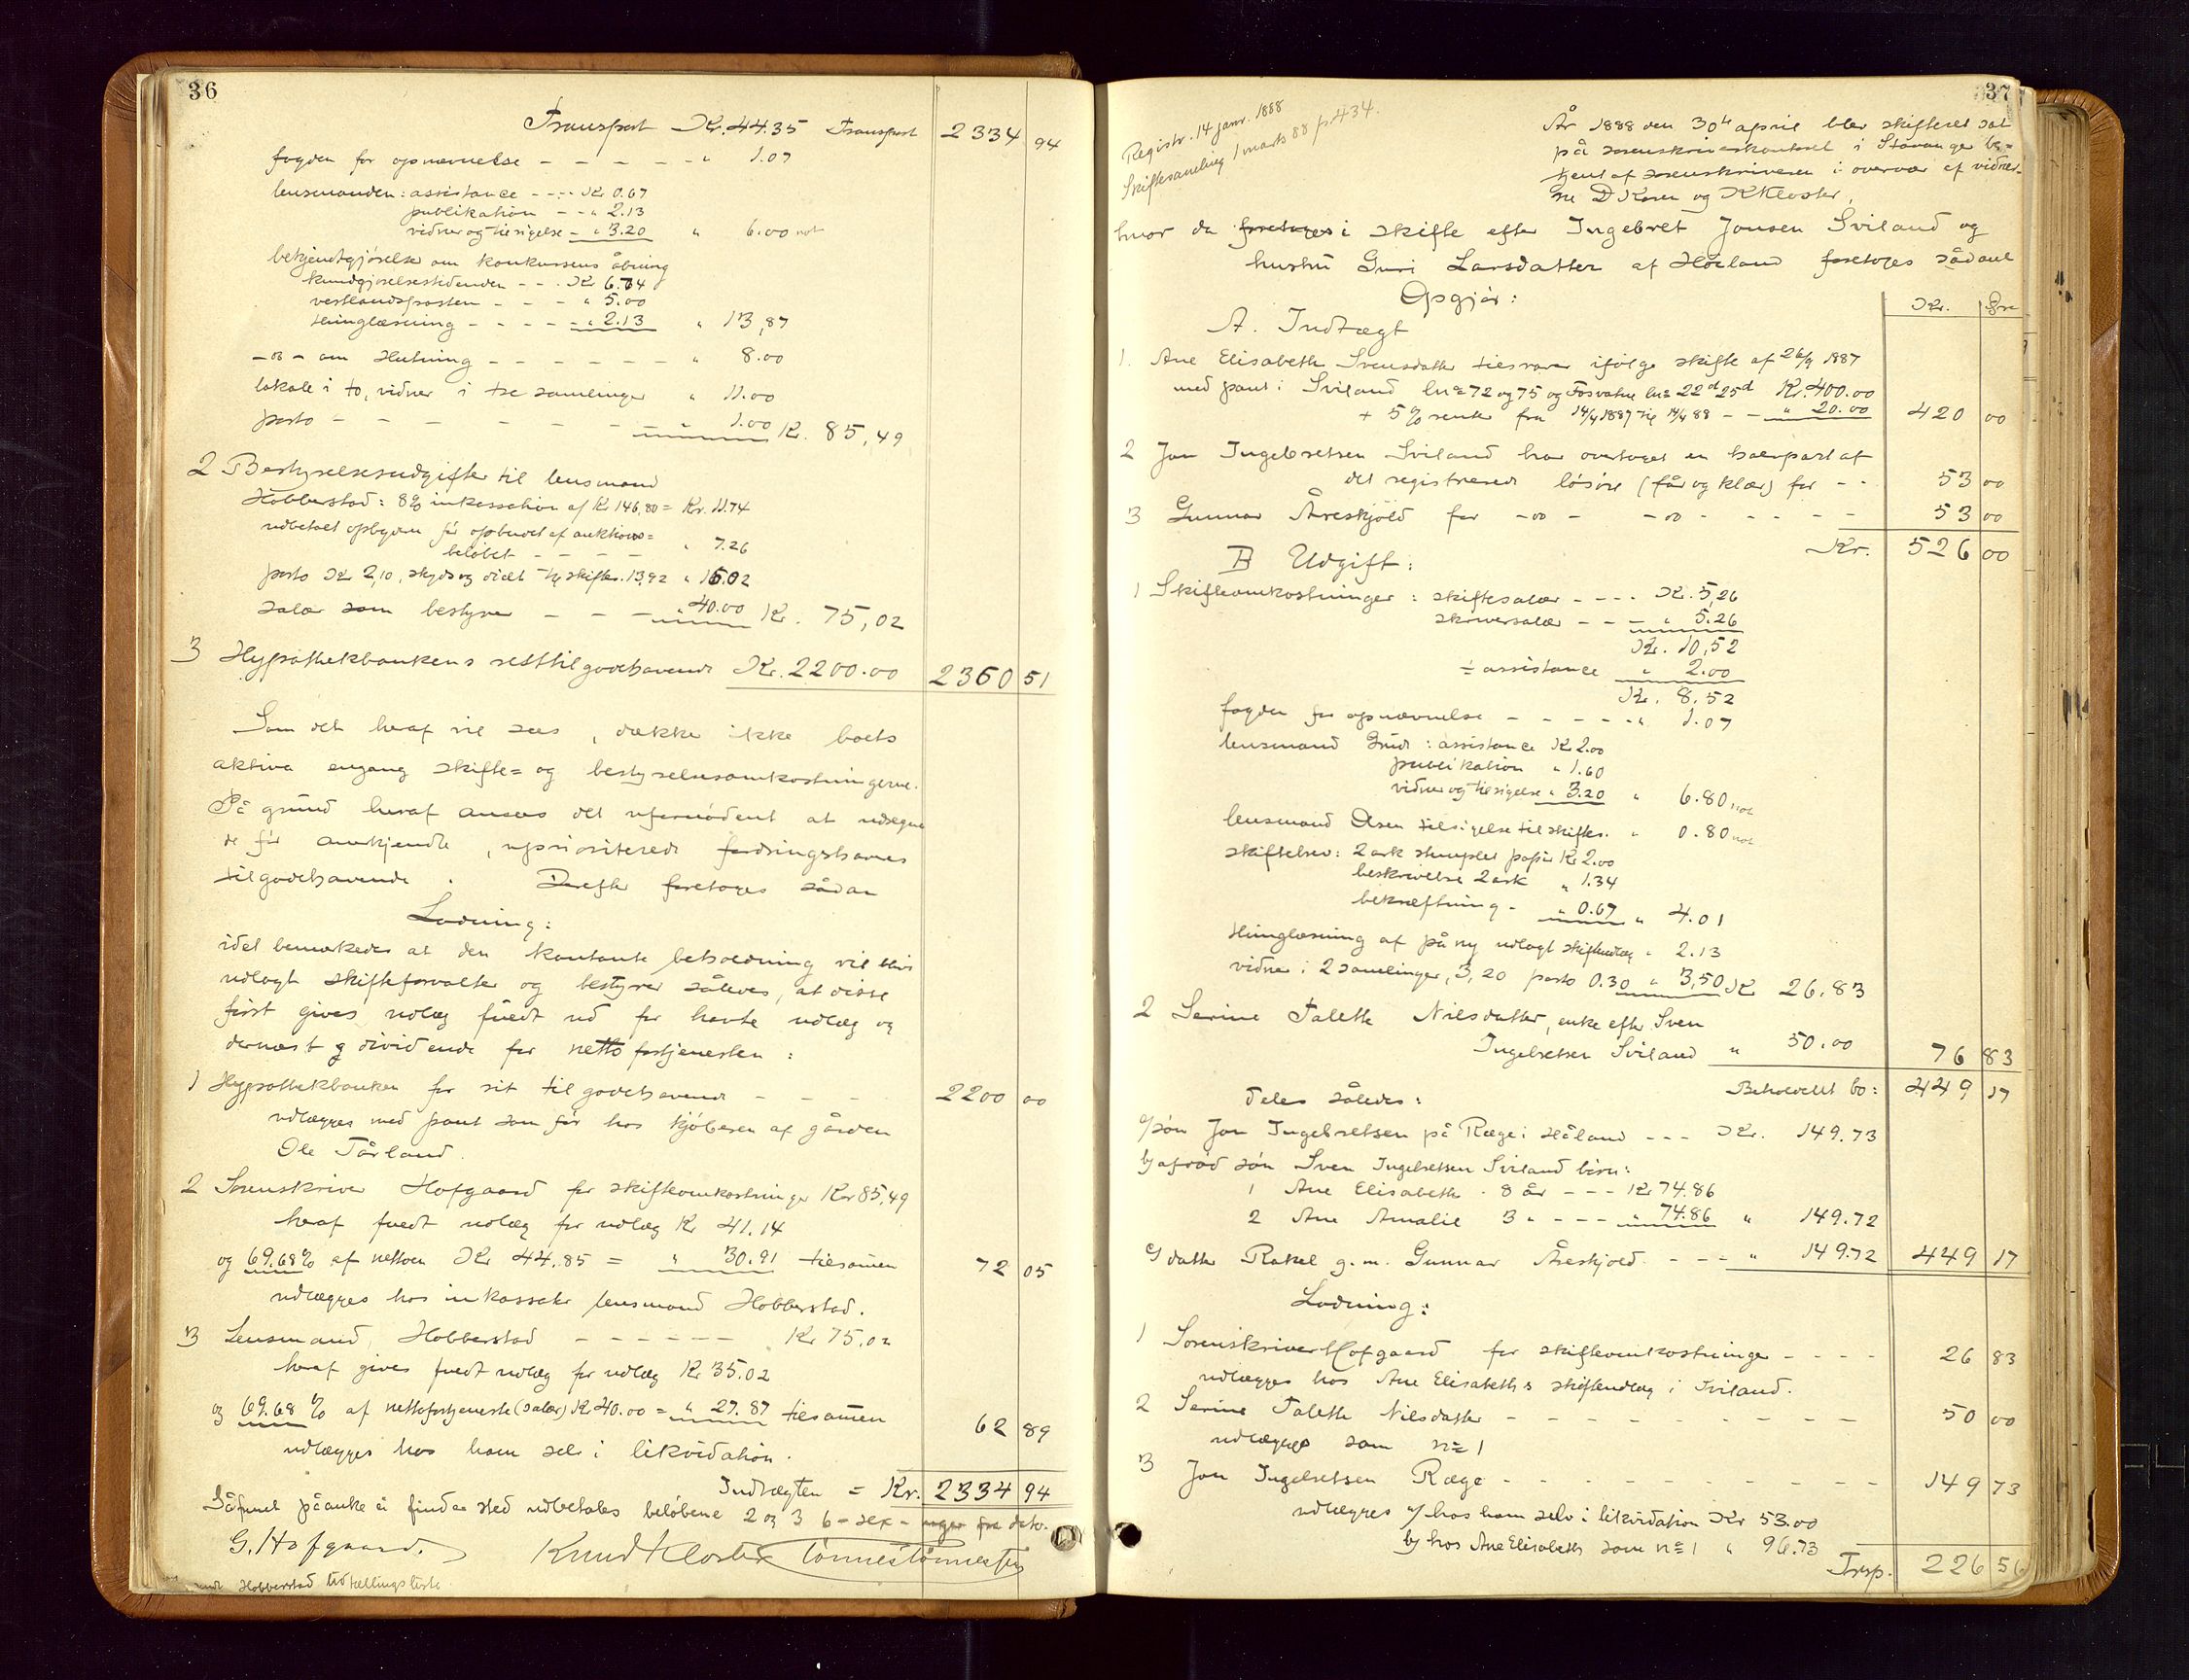 36
Transport Kr. 44.35 Transport 2334 94
fogden for opnævnelse - - - - - " 1.07
lensmanden: assistance - - - Kr 0.67
publikation - - " 2.13
vidner og tilsigelse - " 3.20 " 6.00 not
bekjendtgjørelse om konkursens åbning
kundgjørelsestidenden - - - Kr 6.74
vestlandsposten - - - - " 5.00
thinglæsning - - - - " 2.13 " 13,87
- " - om slutning - - - - - - " 8.00
lokale i to, vidner i tre samlinger " 11.00
porto - - - - - - - " 1.00 Kr. 85,49
2 Bestyrelsesudgifter til lensmand
Hobberstad: 8% inkassation af Kr 146,80 = Kr. 11.74
udbetalt
beløbet - - - - " 7.26
porto Kr 2,10, skyds og diæt til skifte. 13,92 " 16.02
salær som bestyrer - - - " 40.00 Kr. 75,02
3 Hypothekbankens resttilgodehavende Kr. 2200.00 2360 51
Som det heraf vil sees, dække ikke boets
aktiva engang skifte= og bestyrelsesomkostningerne.
På grund heraf ansees det ufornødent at udregne
de før anerkjendte, uprioriterede fordringshaveres
tilgodehavende. Derefter foretoges sådan
Lodning:
idet bemærkedes at den kontante beholdning vil blive
udlagt skifteforvalter og bestyrer således, at disse
først gives udlæg fuldt ud for havte udlæg og
dernæst dividende for netto fortjenesten:
1 Hypothekbanken for sit tilgodehavende - - - 2200 00
udlægges med pant som før hos kjøberen af gården
Ole Tårland.
2 Sorenskriver Hofgaard for skifteomkostninger Kr 85,49
heraf fuldt udlæg for udlæg Kr 41.14
og 69.68% af nettoen Kr 44.85 = " 30.91 tilsammen 72 05
udlægges hos inkassator lensmand Hobberstad.
3 Lensmand Hobberstad - - - - - - Kr 75.02
heraf gives fuldt udlæg for udlæg Kr 35.02
og 69.68% af nettofortjeneste (salær) Kr 40.00 = " 27.87 tilsammen 62 89
udlægges hos ham selv i likvidation.
Indtægten = Kr. 2334 94
Såfremt påanke ei finder sted udbetales beløbene 2 og 3 6 - sex - uger fra dato.
G. Hofgaard. Knud Kloster Tönnes Tönnessen
Hobberstad
37
Registr. 14 janr. 1888
Skiftesamling 1 marts 88 p. 434.
År 1888 den 30te april blev skifteret sat
på sorenskriverkontoret i Stavanger be=
tjent af sorenskriveren i overvær af vidner-
ne D Karen og K Kloster,
hvor da foretoges i skifte efter Ingebret Jonsen Sviland og
hustru Guri Larsdatter af Høiland foretoges sådant
Opgjør:
Kr. Øre
A. Indtægt
1. Ane Elisabeth Svensdatter tilsvarer ifølge skifte af 26/9 1887
med pant i Sviland ln= 72 og 75 og Fosvatne ln= 22d 25d Kr. 400.00
+ 5% rente fra 14/4 1887 til 14/4 88 - - " 20.00 420 00
2 Jon Ingebretsen Sviland har overtaget en halvpart af
det registrerede løsøre (får og klær) for - - 53 00
3 Gunnar Åreskjold for - " - - " - - - - - 53 00
Kr. 526 00
B Udgift:
1 Skifteomkostninger: skiftesalær - - - Kr. 5,26
skriversalær - - - " 5.26
Kr. 10,52
÷ assistance " 2.00
Kr. 8,52
fogden for opnævnelse - - - - - " 1.07
lensmand Grude: assistance Kr 2.00
publikation " 1.60
vidner og tilsigelse " 3.20 " 6.80 not
lensmand Olsen tilsigelse til skifte. " 0.80 not
skiftebrev: 2 ark stemplet papir Kr 2.00
beskrivelse 2 ark " 1.34
bekræftning - " 0.67 " 4.01
thinglæsning af på ny udlagt skifteudlæg " 2.13
vidner i 2 samlinger, 3,20 porto 0.30 " 3,50 Kr 26.83
2 Serine Talette Nilsdatter, enke efter Sven
Ingebretsen Sviland " 50.00 76 83
Beholdent bo: 449 17
deles således:
a/ søn Jon Ingebretsen på Ræge i Håland - - - Kr. 149.73
b/ afdød søn Sven Ingebretsen Sviland børn:
1 Ane Elisabeth - 8 år - - - Kr 74.86
2 Ane Amalie 3 " - - - " 74.86 " 149.72
c/ datter Rakel g. m. Gunnar Åreskjold - - - " 149.72 449 17
Lodning:
1 Sorenskriver Hofgaard for skifteomkostninger - - - - 26 83
udlægges hos Ane Elisabeths skifteudlæg i Sviland.
2 Serine Talette Nilsdatter - - - - - - - - - 50 00
udlægges som n= 1
3 Jon Ingebretsen Ræge - - - - - - - - - - 149 73
udlægges a/ hos ham selv i likvidation Kr 53.00
b/ hos Ane Elisabeth som n= 1 " 96.73
Trsp. 226 56